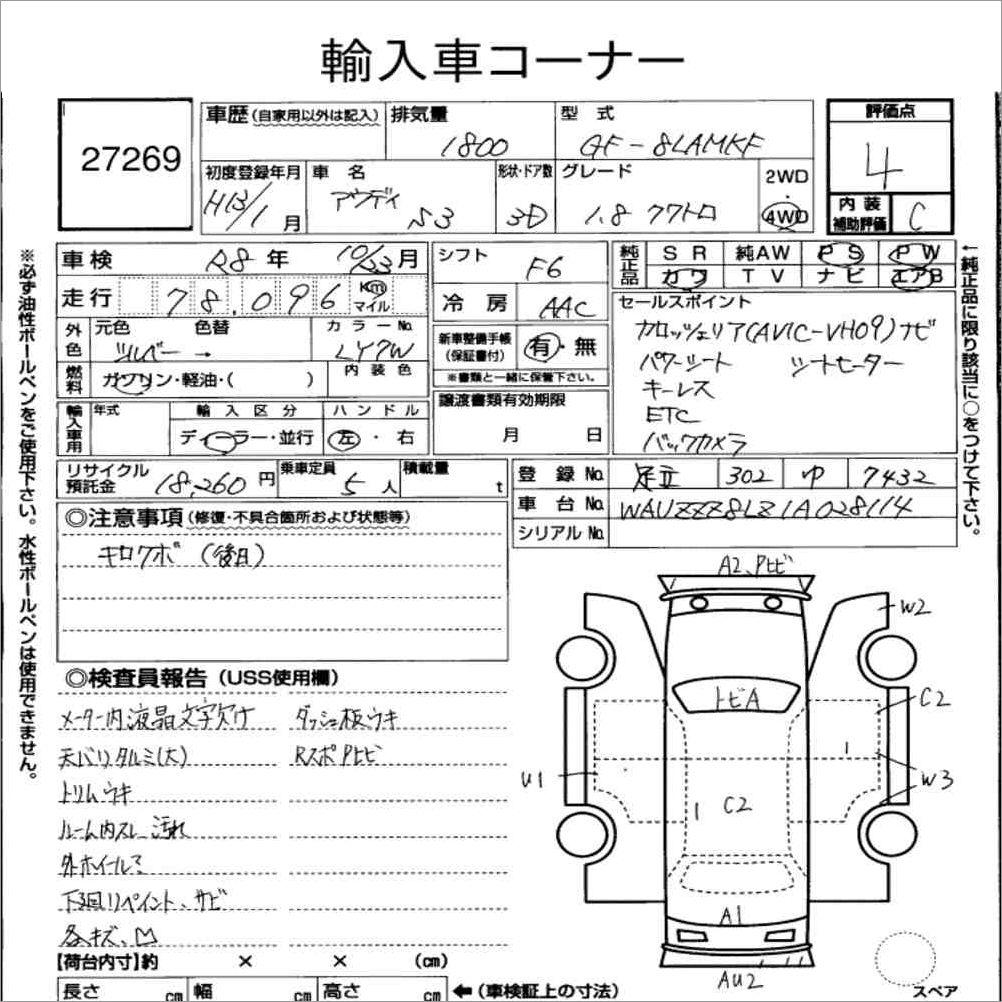 輸入車コーナー
27269
車歴 (自家用以外は記入) 排気量 型式 評価点
1800 GF-8LAMKF 4
初度登録年月 車名 形状・ドア数 グレード 2WD
H13/1月 アウディ S3 3D 1.8 クワトロ ・ 4WD
内装補助評価 C
車検 R8年 10/23月 シフト F6
純正品 SR 純AW PS PW
カワ TV ナビ エアB
走行 78,096 Km マイル 冷房 AAC
セールスポイント
外色 元色 色替 カラーNo.
シルバー → LY7W
新車整備手帳 (保証書付) 有・無
※書類と一緒に保管下さい。
燃料 ガソリン・軽油・( ) 内装色
カロッツェリア(AVIC-VH09)ナビ
パワーシート シートヒーター
キーレス
ETC
バックカメラ
輸入車用 年式 輸入区分 ハンドル
ディーラー・並行 左・右
譲渡書類有効期限
月 日
リサイクル預託金 18,260円 乗車定員 5人 積載量 t
登録No. 足立 302 ゆ 7432
車台No. WAUZZZ8LZ1A028114
シリアルNo.
◎注意事項 (修復・不具合箇所および状態等)
キロクボ (後日)
◎検査員報告 (USS使用欄)
メーター内液晶文字欠け ダッシュ板ウキ
天バリタルミ(大) RスポPヒビ
トリムウキ
ルーム内スレ 汚れ
外ホイールミ
下回リペイント、サビ
各キズ、凹
【荷台内寸】約 × × (cm)
長さ cm 幅 cm 高さ cm ←(車検証上の寸法)
A2、Pヒビ
W2
トビA
C2
1
U1
W3
1 C2
A1
AU2
スペア
※必ず油性ボールペンをご使用下さい。水性ボールペンは使用できません。
←純正品に限り該当に○をつけて下さい。